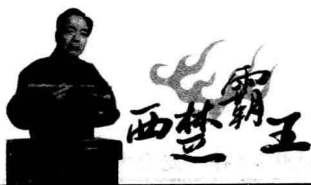 西楚霸王